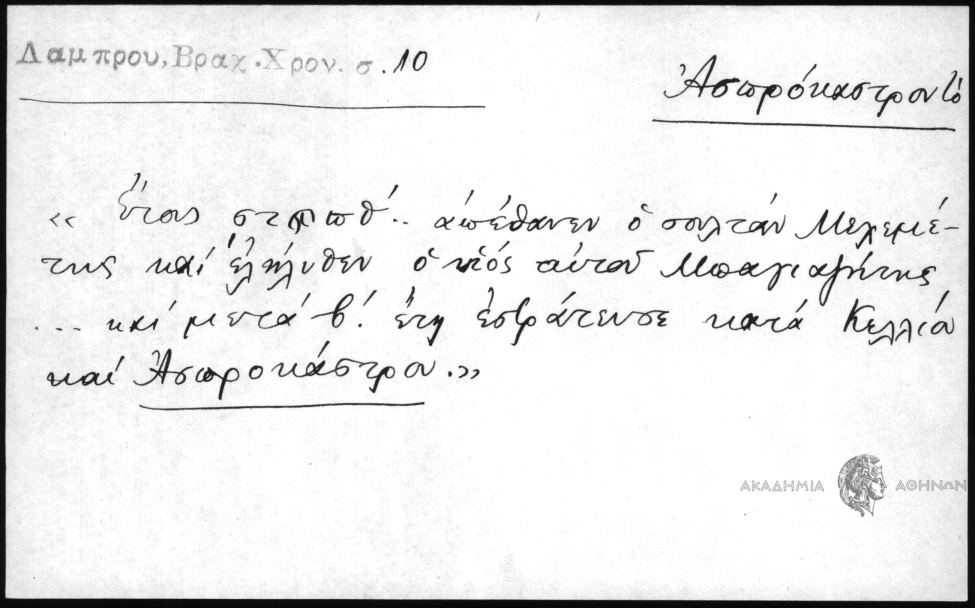 Λαμπρου, Βραχ. Χρον. σ. 10
Ἀσπρόκαστρον τὸ
« Ἔτους στϡπθ΄.. ἀπέθανεν ὁ σουλτὰν Μεχεμέ-
της καὶ ἐλήλυθεν ὁ υἱός αὐτοῦ Μπαγιαζήτης
... καὶ μετὰ β΄. ἔτη ἐστράτευσε κατὰ Κελλίου
καὶ Ἀσπροκάστρου.»
ΑΚΑΔΗΜΙΑ ΑΘΗΝΩΝ